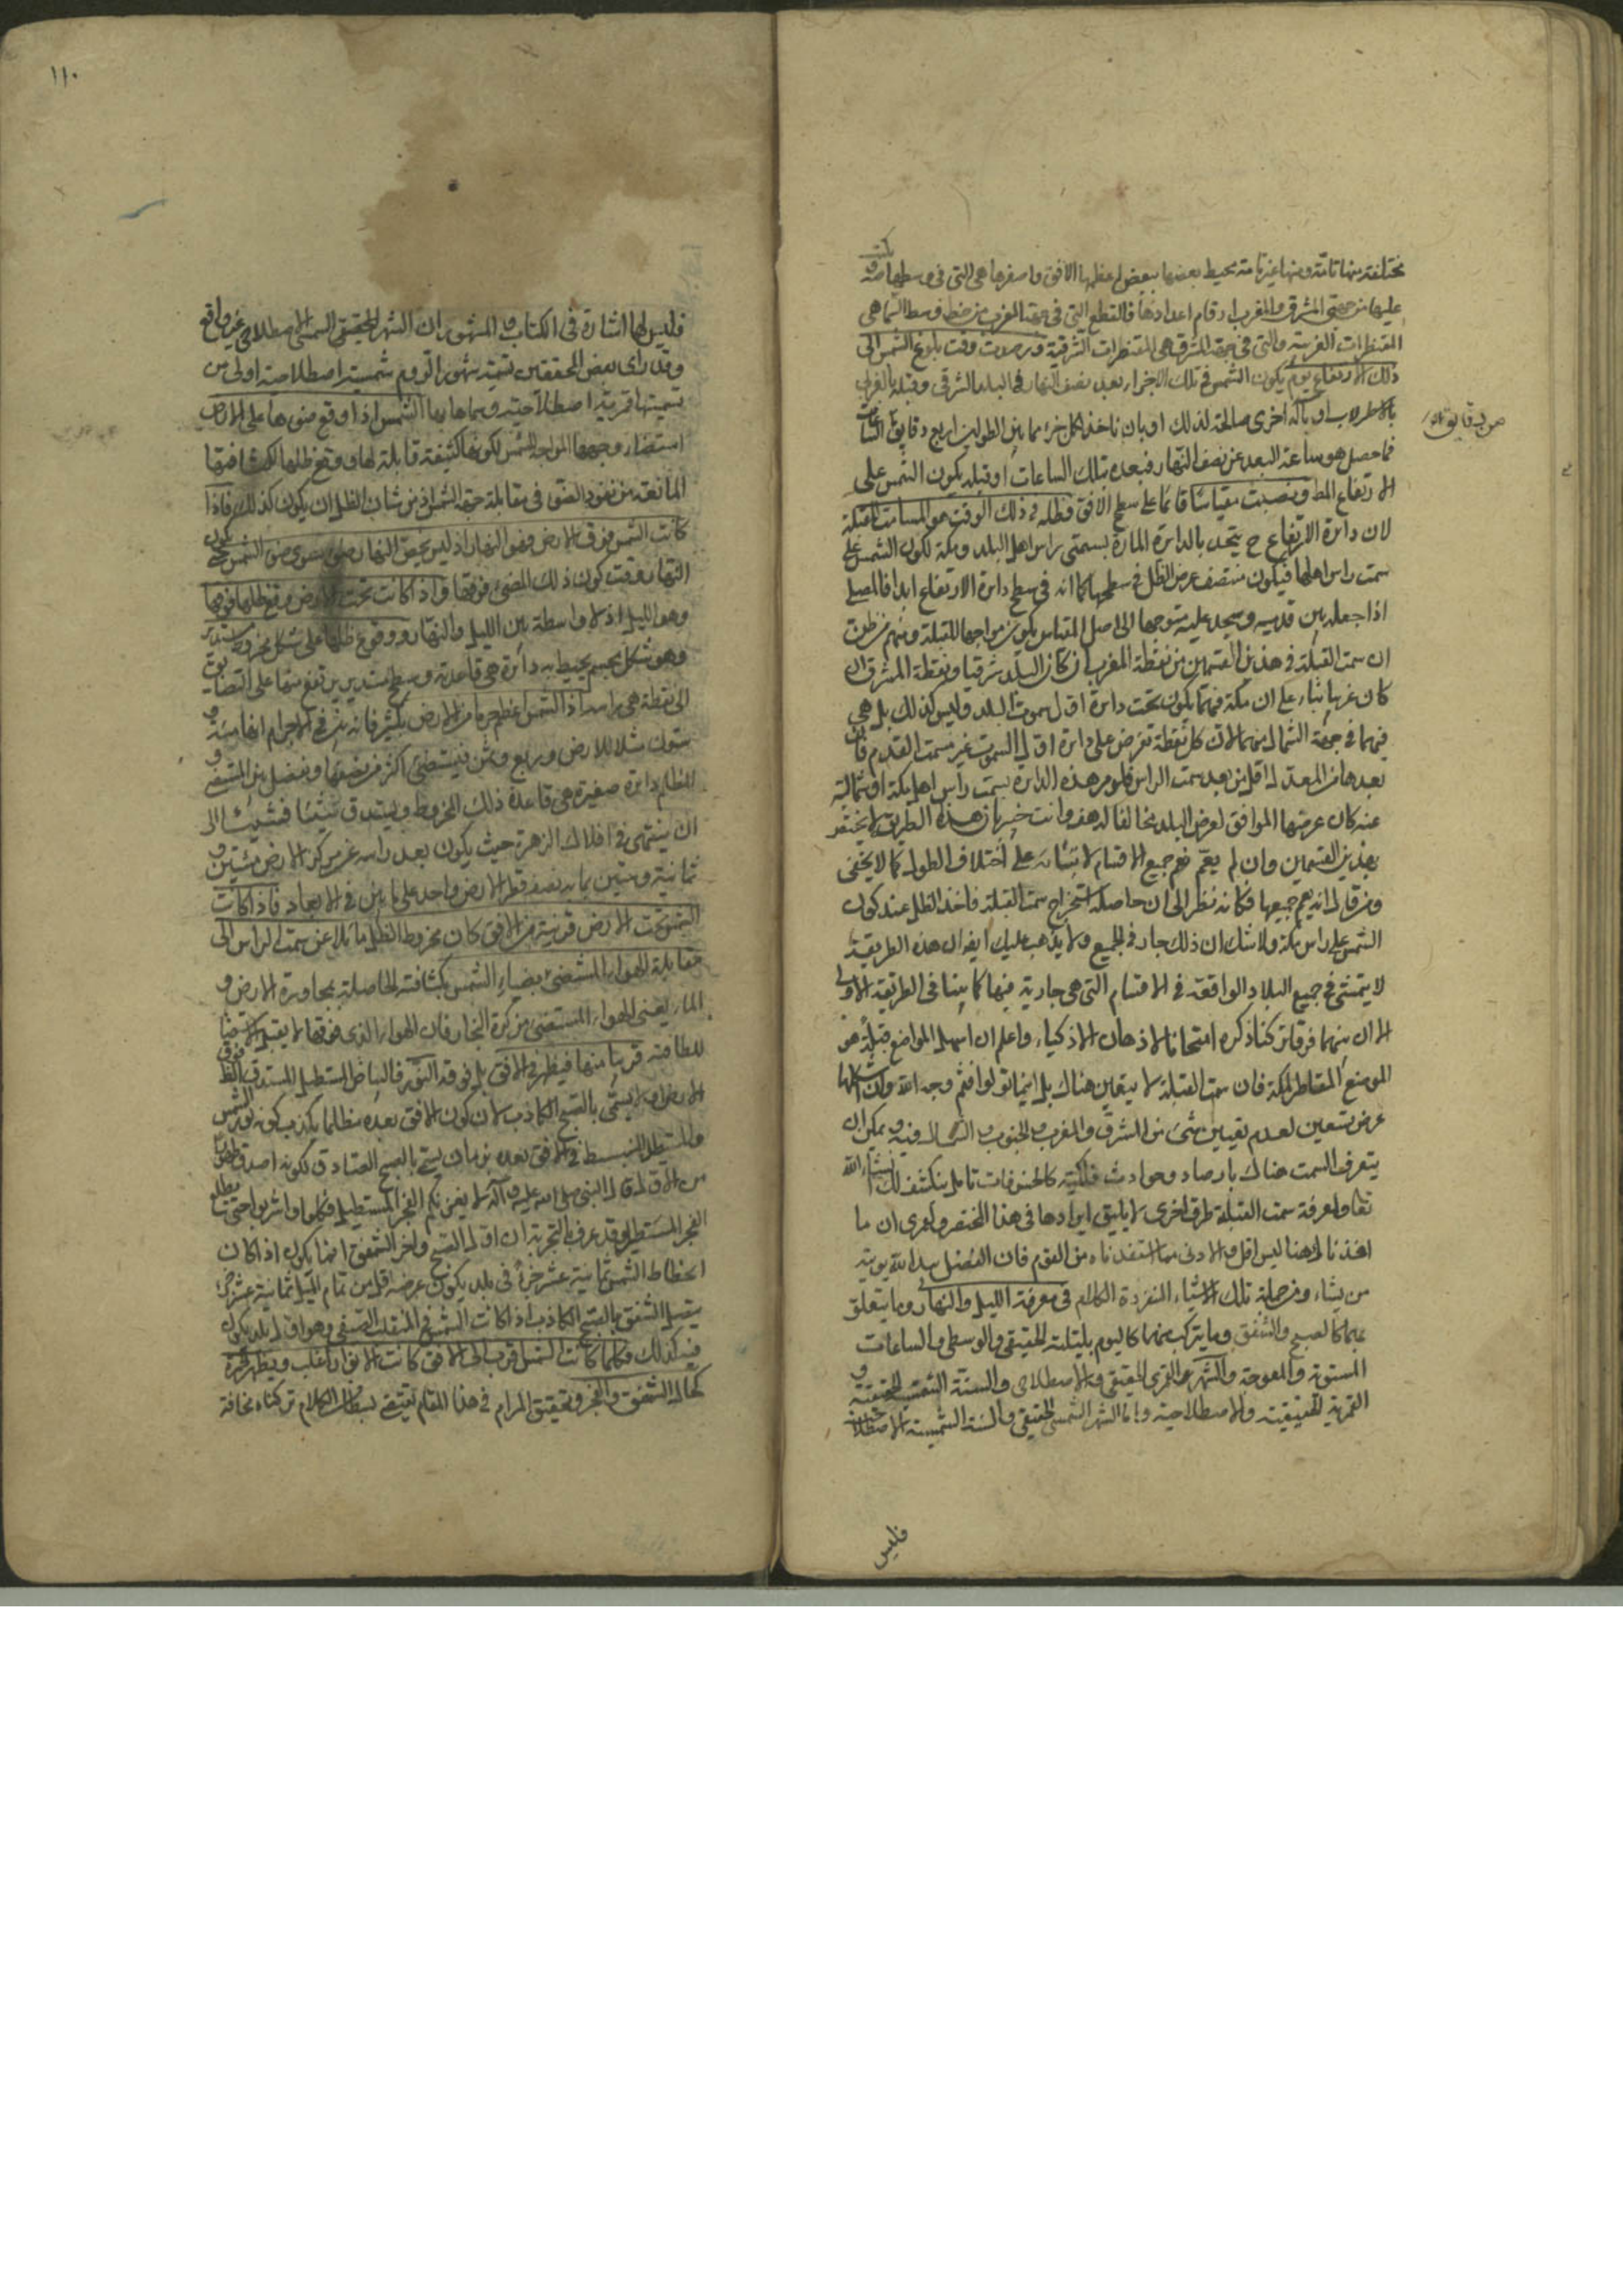 مختلفة منها تامة ومنها غير تامة يحيط بعضها ببعض اعظمها الافق واصغرها هي التي في وسطها مكتوب
عليها من جهتي المشرق والمغرب ارقام اعدادها فالقطع التي في جهة المغرب من خط وسط السماء هي
المقنطرات الغربية والتي في جهة المشرق هي المقنطرات الشرقية ورصدت وقت بلوغ الشمس الى
ذلك الارتفاع يوم يكون الشمس في تلك الاجزاء بعد نصف النهار في البلد الشرقي وقبله بالغربي
بالاسطرلاب او بآلة اخرى صالحة لذلك او بان تاخذ لكل جزء مما بين الطولين اربع دقايق الساعات
فما حصل هو ساعة البعد عن نصف النهار فبعده بتلك الساعات او قبله يكون الشمس على
الارتفاع المط ونصبت مقياسا قائما على سطح الافق فظله في ذلك الوقت هو المسامت للقبلة
لان دائرة الارتفاع ح يتحد بالدائرة المارة بسمتي راس اهل البلد ومكة لكون الشمس على
سمت راس اهلها فيكون منتصف عرض الظل في سطحها كما انه في سطح دائرة الارتفاع ابدا فالمصلي
اذا جعله بين قدميه وسجد عليه متوجها الى اصل المقياس يكون مواجها للقبلة ومنهم من ظن
ان سمت القبلة في هذين القسمين من نقطة المغرب ان كان البلد شرقيا ونقطة المشرق ان
كان غربيا بناء على ان مكة فيهما يكون تحت دائرة اول سموت البلد وليس كذلك بل هي
فيهما في جهة الشمال منهما لان كل نقطة تفرض على دائرة اول السموت غير سمت القدم فان
بعدها من المعدل اقل من بعد سمت الراس فلو مر هذه الدائرة بسمت راس اهل مكة او شمالية
عنه كان عرضها الموافق لعرض البلد مخالفا له هف وانت خبير بان هذه الطريق لا يختص
بهذين القسمين وان لم يعم جميع الاقسام لابتنائه على اختلاف الطول كما لا يخفى
ومن قال انه يعم جميعها فكانه نظر الى ان حاصله استخراج سمت القبلة فاخذ الظل عند كون
الشمس على راس مكة ولا شك ان ذلك جار في الجميع ولا يذهب عليك ايضا ان هذه الطريقة
لا يتمشى في جميع البلاد الواقعة في الاقسام التي هي جارية فيها كما بينا في الطريقة الاولى
الا ان بينهما فرقا تركنا ذكره امتحانا لاذهان الاذكياء واعلم ان اسهل المواضع قبلة هو
الموضع المقاطر لمكة فان سمت القبلة لا يتعين هناك بل اينما تولوا فثم وجه الله وان اشكلها
عرض تسعين لعدم تعيين شئ من المشرق والمغرب والجنوب والشمال فيه ويمكن ان
يتعرف السمت هناك بارصاد وحوادث فلكية كالخسوفات تامل ينكشف لك ان شاء الله
تعا ولمعرفة سمت القبلة طرق اخرى لا يليق ايرادها في هذا المختصر ولعمري ان ما
افدناه هنا ليس اقل ولا ادنى مما استفدناه من القوم فان الفضل بيد الله يؤتيه
من يشاء ومن جملة تلك الاشياء المنفردة الكلام في معرفة الليل والنهار وما يتعلق
بهما كالصبح والشفق وما يتركب منهما كاليوم بليلته الحقيقي والوسطي والساعات
المستوية والمعوجة والشهر القمري الحقيقي والاصطلاحي والسنة الشمسية الحقيقية و
القمرية الحقيقية والاصطلاحية واما الشهر الشمسي الحقيقي والسنة الشمسية الاصطلاحية
فليس
من دقايق
١١٠
فليس لها اشارة في الكتاب والمشهور ان الشهر الحقيقي الشمسي الاصطلاحي غير واقع
وقد راى بعض المحققين تسمية شهور الروم شمسية اصطلاحية اولى من
تسميتها قمرية اصطلاحية وسماها بها الشمس اذا وقع ضوءها على الارض
استضاء وجهها المواجه للشمس لكونها كثيفة قابلة لها ووقع ظلها لكثافتها
المانعة من نفوذ الضوء في مقابلة جهة الشمس اذ من شان الظل ان يكون كذلك فاذا
كانت الشمس فوق الارض فهو النهار اذ ليس يعنى النهار سوى ضوء الشمس فيكون
النهار وقت كون ذلك المضئ فوقها واذا كانت تحت الارض وقع ظلها فوقها
وهو الليل اذ لا واسطة بين الليل والنهار ووقوع ظلها على شكل مخروط مستدير
وهو شكل مجسم يحيط به دائرة هي قاعدته وسطح مستدير يرتفع منها على التضايق
الى نقطة هي راسه اذ الشمس اعظم جرما من الارض بكثير فانه بين في الاجرام انها مائة و
ستون مثلا للارض وربع وثمن فيستضئ اكثر من نصفها ويفصل بين المستضئ و
المظلم دائرة صغيرة هي قاعدة ذلك المخروط ويستدق شيئا فشيئا الى
ان ينتهي في افلاك الزهرة حيث يكون بعد راسه عن مركز الارض مئتين و
ثمانية وستين بما به نصف قطر الارض واحد على ما بين في الابعاد فاذا كانت
الشمس تحت الارض قريبة من الافق كان مخروط الظل مائلا عن سمت الراس الى
مقابلة الهواء المستضئ بضياء الشمس لكثافته الحاصلة بمجاورة الارض و
الماء يعنى الهواء المستضئ من كرة البخار فان الهواء الذي فوقها لا يقبل الاستضاءة
للطافته قريبا منها فيظهر في الافق بل فوقه النور فالبياض المستطيل المستدق الظاهر فوق
الارض او لا يسمى بالصبح الكاذب لان كون الافق بعده مظلما يكذب كونه نور الشمس
والمستطيل المنبسط في الافق بعده بزمان يسمى بالصبح الصادق لكونه اصدق ظهورا
من الاول قال النبي صلى الله عليه وآله لا يغرنكم الفجر المستطيل فكلوا واشربوا حتى يطلع
الفجر المستطير وقد عرف بالتجربة ان اول الصبح واخر الشفق انما يكون اذا كان
انحطاط الشمس ثمانية عشر جزءا في بلد يكون عرضه اقل من تمام الميل ثمانية عشر جزء
يتصل الشفق بالصبح الكاذب اذا كانت الشمس في المنقلب الصيفي وهو اقل بلد يكون
فيه كذلك فكلما كانت الشمس اقرب الى الافق كانت الانوار اغلب ويظهر الحمرة
كحال الشفق والفجر وتحقيق المرام في هذا المقام يقتضي بسطا في الكلام تركناه مخافة